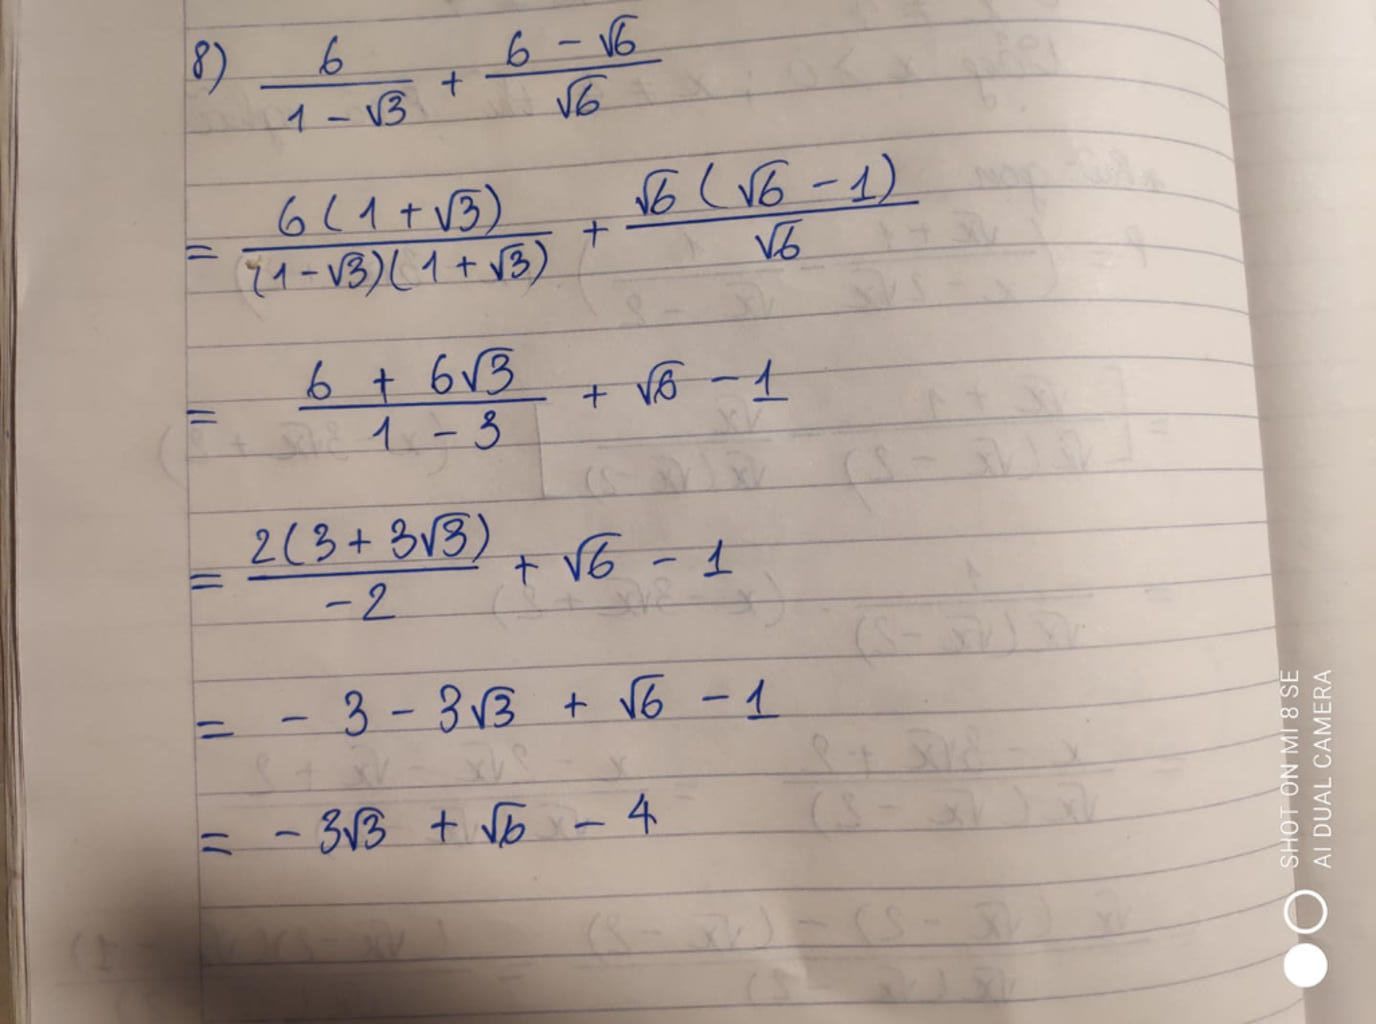 8) 6/(1 - √3) + (6 - √6)/√6
= 6(1 + √3)/((1 - √3)(1 + √3)) + √6(√6 - 1)/√6
= (6 + 6√3)/(1 - 3) + √6 - 1
= 2(3 + 3√3)/(-2) + √6 - 1
= - 3 - 3√3 + √6 - 1
= - 3√3 + √6 - 4
SHOT ON MI 8 SE
AI DUAL CAMERA